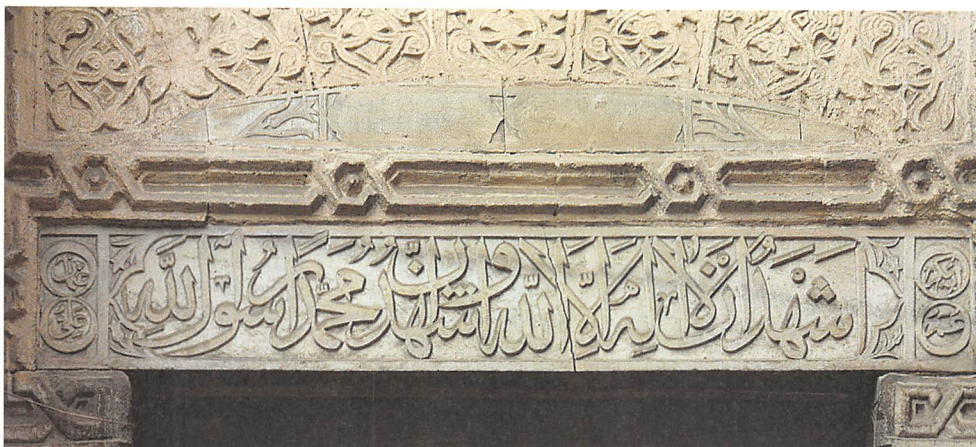 شهد ان لا اله الا الله واشهد ان محمدا رسول الله